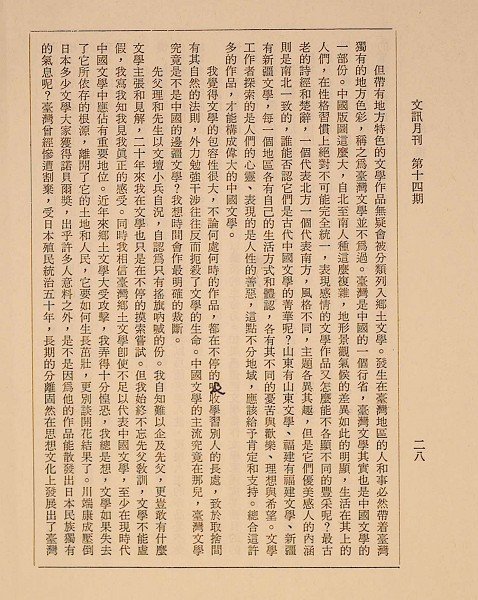 文訊月刊　第十四期
二八
但帶有地方特色的文學作品無疑會被分類列入鄉土文學。發生在臺灣地區的人和事必然帶着臺灣
獨有的地方色彩，稱之爲臺灣文學並不爲過。臺灣是中國的一個行省，臺灣文學其實也是中國文學的
一部份。中國版圖這麼大，自北至南人種這麼複雜，地形景觀氣候的差異如此的明顯，生活在其上的
人們，在性格習慣上絕對不可能完全統一，表現感情的文學作品又怎麼能不各顯不同的豐采呢？最古
老的詩經和楚辭，一個代表北方一個代表南方，風格不同，主題各異其趣，但是它們優美感人的內涵
則是南北一致的，誰能否認它們是古代中國文學的菁華呢？山東有山東文學、福建有福建文學、新疆
有新疆文學，每一個地區各有自己的生活方式和體認，各有其不同的憂苦與歡樂、理想與希望。文學
工作者探索的是人們的心靈、表現的是人性的善惡，這點不分地域，應該給予肯定和支持。總合這許
多的作品，才能構成偉大的中國文學。
我覺得文學的包容性很大，不論何處何時的作品，都在不停的吸收學習別人的長處，致於取捨間
有其自然的法則，外力勉強干涉往往反而扼殺了文學的生命。中國文學的主流究竟在那兒，臺灣文學
究竟是不是中國的邊疆文學？我想時間會作最明確的裁斷。
先父理和先生以文壇小兵自況，自認爲只有搖旗吶喊的份。我自知難以企及先父，更豈敢有什麼
文學主張和見解，二十年來我在文學也只是在不停的摸索嘗試。但我始終不忘先父教訓，文學不能虛
假，我寫我知我見我眞正的感受。同時我相信臺灣鄉土文學卽使不足以代表中國文學，至少在現時代
中國文學中應佔有重要地位。近年來鄉土文學大受攻擊，我弄得十分惶恐，我總是想，文學如果失去
了它所依存的根源，離開了它的土地和人民，它要如何生長茁壯，更別談開花結果了。川端康成壓倒
日本多少文學大家獲得諾貝爾獎，出乎許多人意料之外，是不是因爲他的作品能散發出日本民族獨有
的氣息呢？臺灣曾經慘遭割棄，受日本殖民統治五十年，長期的分離固然在思想文化上發展出了臺灣